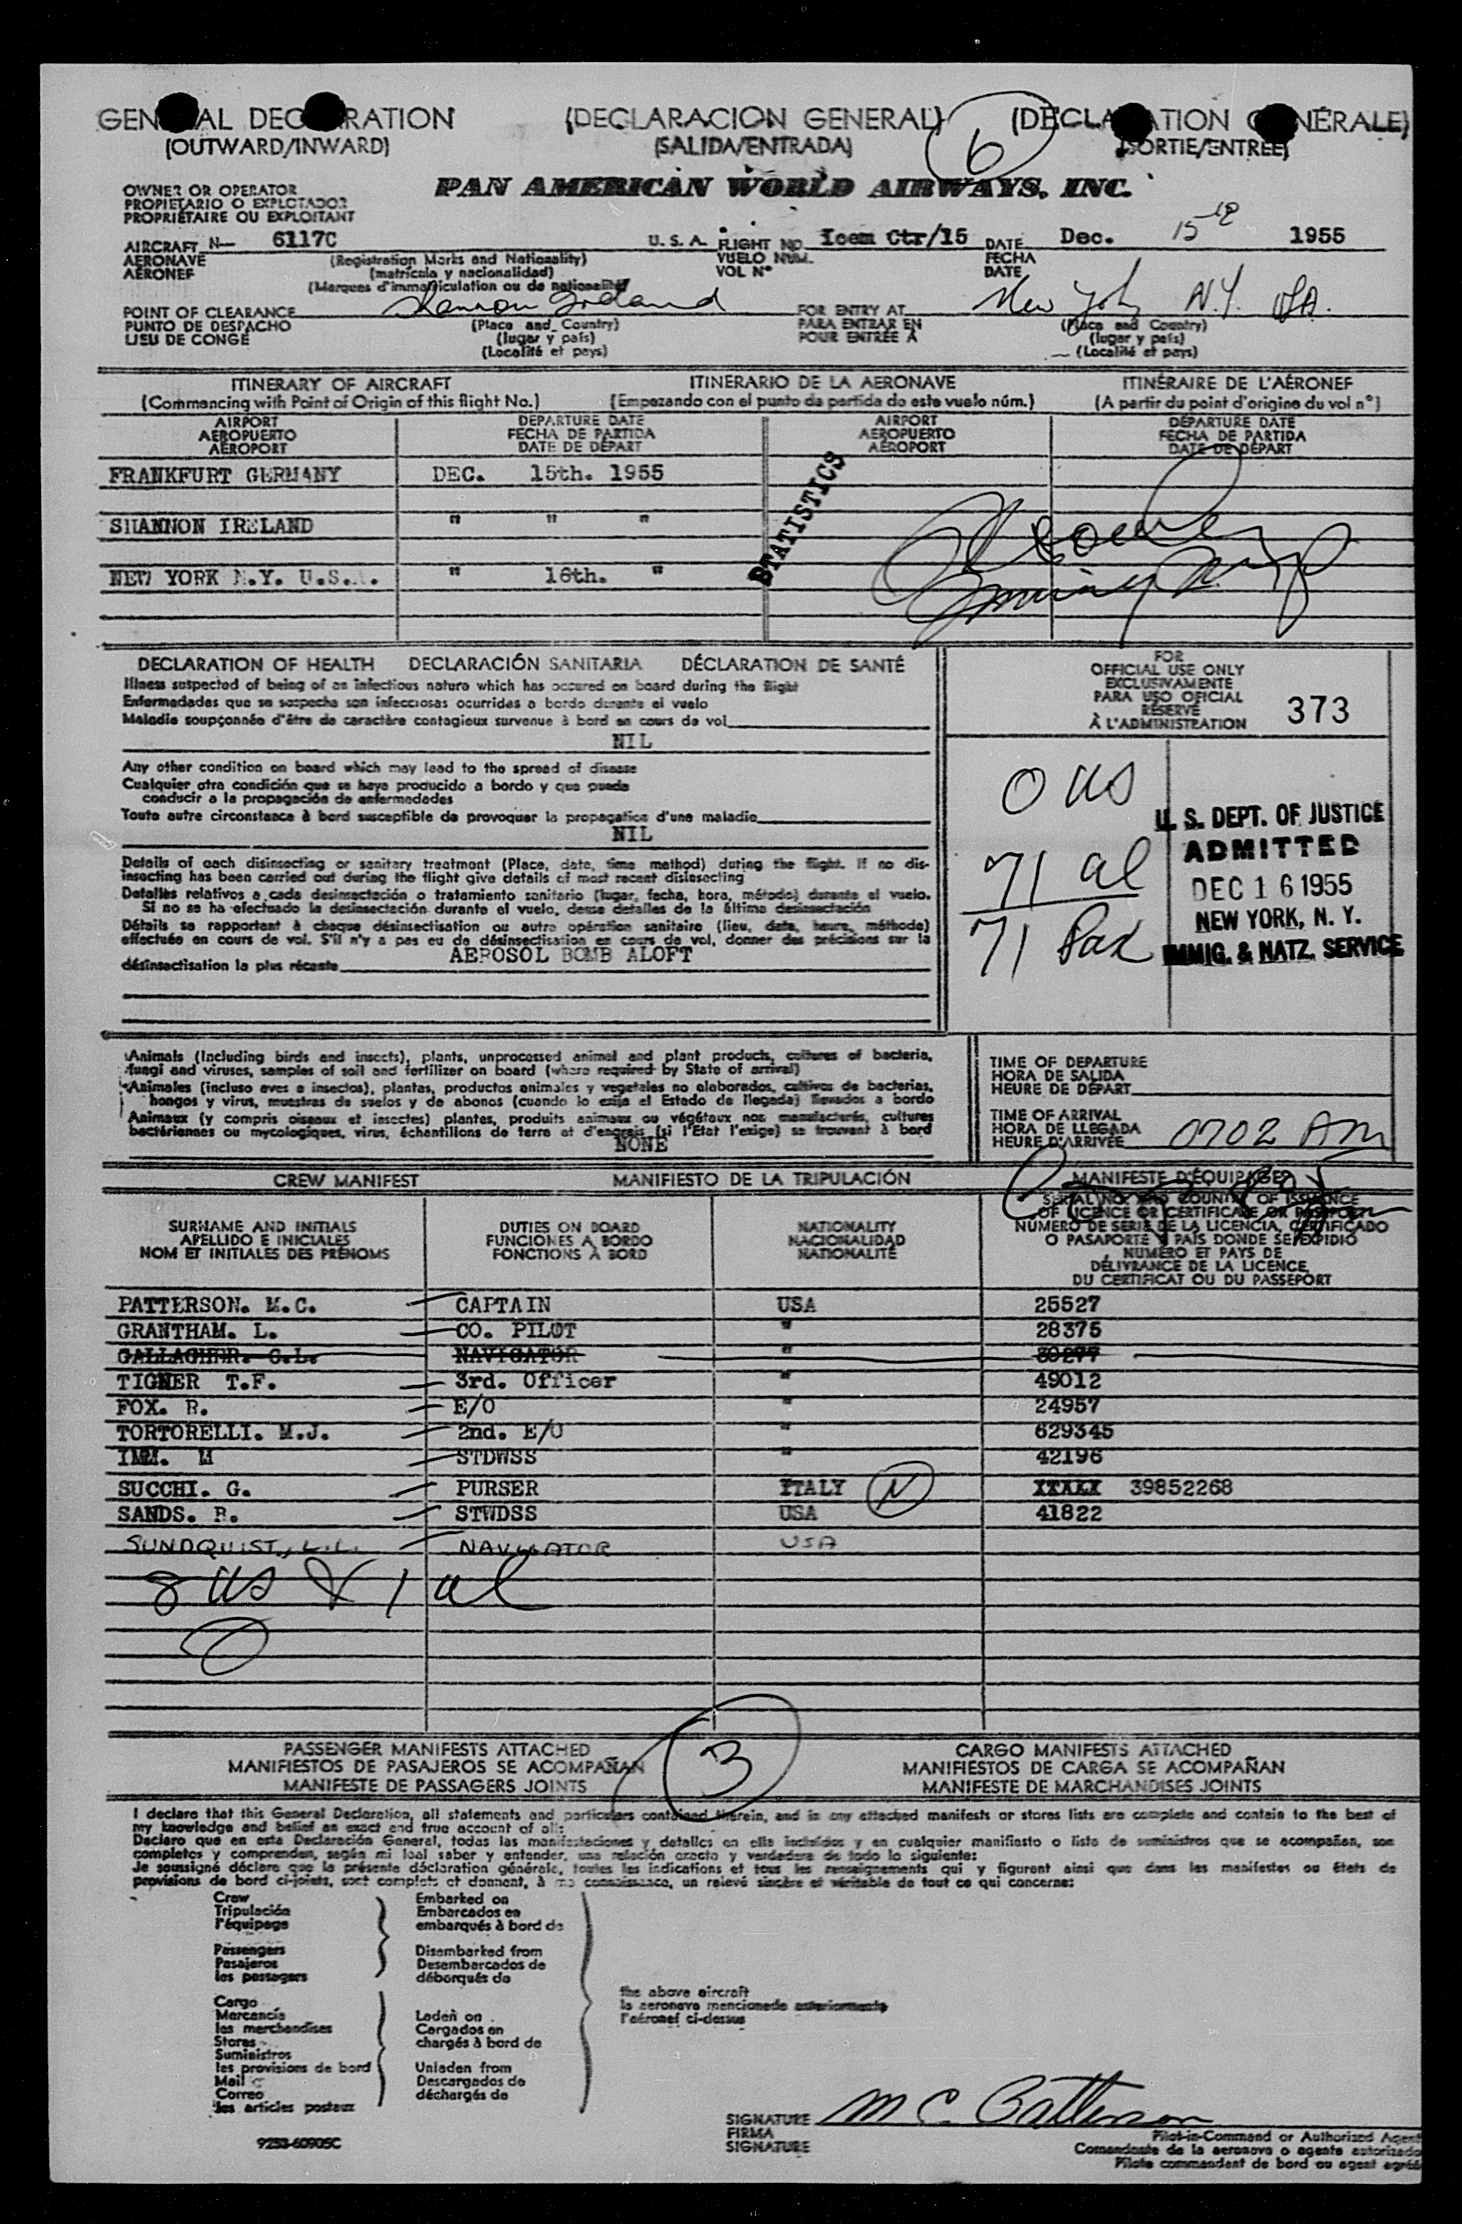 GENERAL DECLARATION (DECLARACION GENERAL) (DÉCLARATION GÉNÉRALE)
(OUTWARD/INWARD) (SALIDA/ENTRADA) (SORTIE/ENTRÉE)
6
OWNER OR OPERATOR
PROPIETARIO O EXPLOTADOR
PROPRIÉTAIRE OU EXPLOITANT
PAN AMERICAN WORLD AIRWAYS, INC.
AIRCRAFT N— 6117C U. S. A. FLIGHT NO. Icem Ctr/15 DATE Dec. 15th 1955
AÉRONAVE (Registration Marks and Nationality) VUELO NUM. FECHA
AÉRONEF (matricula y nacionalidad) VOL N° DATE
(Marques d'immatriculation ou de nationalité)
POINT OF CLEARANCE Shannon Ireland FOR ENTRY AT New York N.Y. USA.
PUNTO DE DESPACHO (Place and Country) PARA ENTRAR EN (Place and Country)
LIEU DE CONGÉ (lugar y país) POUR ENTRÉE A (lugar y país)
(Localité et pays) (Localité et pays)
ITINERARY OF AIRCRAFT ITINERARIO DE LA AERONAVE ITINÉRAIRE DE L'AÉRONEF
(Commencing with Point of Origin of this flight No.) (Empezando con el punto de partida de este vuelo núm.) (A partir du point d'origine du vol n°)
AIRPORT DEPARTURE DATE AIRPORT DEPARTURE DATE
AEROPUERTO FECHA DE PARTIDA AEROPUERTO FECHA DE PARTIDA
AÉROPORT DATE DE DÉPART AÉROPORT DATE DE DÉPART
FRANKFURT GERMANY DEC. 15th. 1955
STATISTICS
SHANNON IRELAND " " "
NEW YORK N.Y. U.S.A. " 16th. "
DECLARATION OF HEALTH DECLARACIÓN SANITARIA DÉCLARATION DE SANTÉ
Illness suspected of being of an infectious nature which has occured on board during the flight
Enfermedades que se sospecha son infecciosas ocurridas a bordo durante el vuelo
Maladie soupçonnée d'être de caractère contagieux survenue à bord en cours de vol
NIL
FOR
OFFICIAL USE ONLY
EXCLUSIVAMENTE
PARA USO OFICIAL
RÉSERVÉ
À L'ADMINISTRATION
373
Any other condition on board which may lead to the spread of disease
Cualquier otra condición que se haya producido a bordo y que pueda
conducir a la propagación de enfermedades
Toute autre circonstance à bord susceptible de provoquer la propagation d'une maladie
NIL
0 US
71 al
71 Pax
U. S. DEPT. OF JUSTICE
ADMITTED
DEC 16 1955
NEW YORK, N. Y.
IMMIG. & NATZ. SERVICE
Details of each disinsecting or sanitary treatment (Place, date, time method) during the flight. If no dis-
insecting has been carried out during the flight give details of most recent disinsecting
Detalles relativos a cada desinsectación o tratamiento sanitario (lugar, fecha, hora, método) durante el vuelo.
Si no se ha efectuado la desinsectación durante el vuelo, dense detalles de la última desinsectación
Détails se rapportant à chaque désinsectisation ou autre opération sanitaire (lieu, date, heure, méthode)
effectuée en cours de vol. S'il n'y a pas eu de désinsectisation en cours de vol, donner des précisions sur la
désinsectisation la plus récente AEROSOL BOMB ALOFT
Animals (Including birds and insects), plants, unprocessed animal and plant products, cultures of bacteria,
fungi and viruses, samples of soil and fertilizer on board (where required by State of arrival)
Animales (incluso aves e insectos), plantas, productos animales y vegetales no elaborados, cultivos de bacterias,
hongos y virus, muestras de suelos y de abonos (cuando lo exija el Estado de llegada) llevados a bordo
Animaux (y compris oiseaux et insectes) plantes, produits animaux ou végétaux non manufacturés, cultures
bactériennes ou mycologiques, virus, échantillons de terre et d'engrais (si l'État l'exige) se trouvant à bord
NONE
TIME OF DEPARTURE
HORA DE SALIDA
HEURE DE DÉPART
TIME OF ARRIVAL
HORA DE LLEGADA
HEURE D'ARRIVÉE 0702 Am
CREW MANIFEST MANIFIESTO DE LA TRIPULACIÓN MANIFESTE D'ÉQUIPAGE
SURNAME AND INITIALS
APELLIDO E INICIALES
NOM ET INITIALES DES PRÉNOMS
DUTIES ON BOARD
FUNCIONES A BORDO
FONCTIONS À BORD
NATIONALITY
NACIONALIDAD
NATIONALITÉ
SERIAL NO. AND COUNTRY OF ISSUANCE
OF LICENCE OR CERTIFICATE OR PASSPORT
NÚMERO DE SERIE DE LA LICENCIA, CERTIFICADO
O PASAPORTE Y PAÍS DONDE SE EXPIDIÓ
NUMÉRO ET PAYS DE
DÉLIVRANCE DE LA LICENCE,
DU CERTIFICAT OU DU PASSEPORT
PATTERSON. M.C. CAPTAIN USA 25527
GRANTHAM. L. CO. PILOT " 28375
GALLAGHER. C.L. NAVIGATOR " 30277
TIGNER T.F. 3rd. Officer " 49012
FOX. R. E/O " 24957
TORTORELLI. M.J. 2nd. E/O " 629345
IMM. M STDWSS " 42196
SUCCHI. G. PURSER ITALY N ITALY 39852268
SANDS. R. STWDSS USA 41822
SUNDQUIST, L.L. NAVIGATOR USA
8 US & 1 al
PASSENGER MANIFESTS ATTACHED CARGO MANIFESTS ATTACHED
MANIFIESTOS DE PASAJEROS SE ACOMPAÑAN 3 MANIFIESTOS DE CARGA SE ACOMPAÑAN
MANIFESTE DE PASSAGERS JOINTS MANIFESTE DE MARCHANDISES JOINTS
I declare that this General Declaration, all statements and particulars contained therein, and in any attached manifests or stores lists are complete and contain to the best of
my knowledge and belief an exact and true account of all:
Declaro que en esta Declaración General, todas las manifestaciones y detalles en ella incluídos y en cualquier manifiesto o lista de suministros que se acompañan, son
completos y comprenden, según mi leal saber y entender, una relación exacta y verdadera de todo lo siguiente:
Je soussigné déclare que la présente déclaration générale, toutes les indications et tous les renseignements qui y figurent ainsi que dans les manifestes ou états de
provisions de bord ci-joints, sont complets et donnent, à ma connaissance, un relevé sincère et véritable de tout ce qui concerne:
Crew Embarked on
Tripulación Embarcados en
l'équipage embarqués à bord de
Passengers Disembarked from
Pasajeros Desembarcados de
les passagers débarqués de
the above aircraft
la aeronave mencionada anteriormente
l'aéronef ci-dessus
Cargo
Mercancía Laden on
les merchandises Cargados en
Stores chargés à bord de
Suministros
les provisions de bord Unladen from
Mail Descargados de
Correo déchargés de
les articles postaux
SIGNATURE M C Patterson
FIRMA Pilot-in-Command or Authorized Agent
SIGNATURE Comandante de la aeronave o agente autorizado
Pilote commandant de bord ou agent agréé
9253-60905C